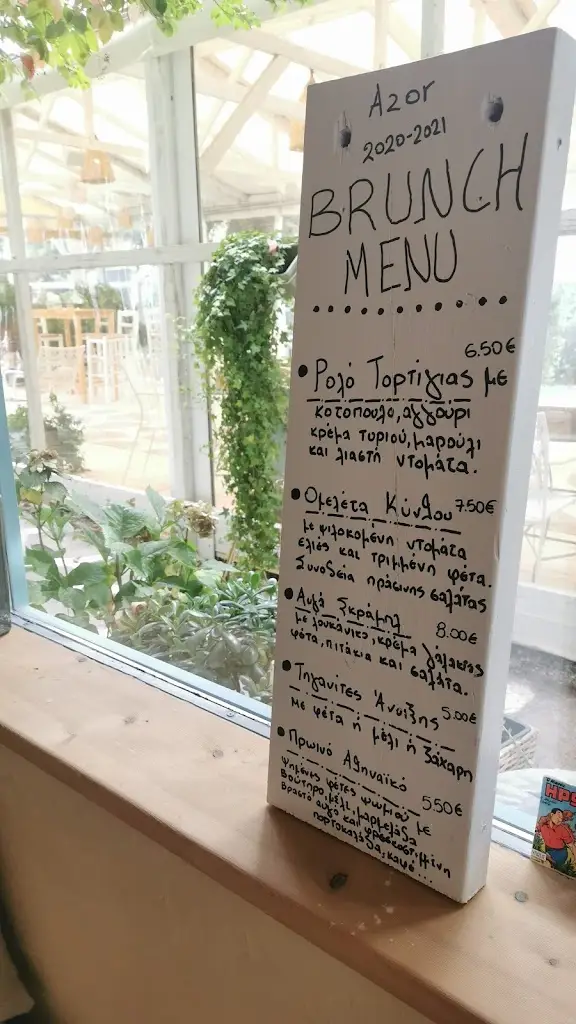 Azor
2020-2021
BRUNCH
MENU
6.50€
• Ρολό Τορτίγιας με
κοτοπουλο, αγγούρι
κρέμα τυριού, μαρούλι
και λιαστή ντομάτα.
• Ομελέτα Κύνθου 7.50€
με ψιλοκομένη ντομάτα
ελιές και τριμμένη φέτα.
Συνοδεία πράσινης σαλάτας
• Αυγά Σκράμπλ 8.00€
με λουκάνικο, κρέμα γάλακτος
φέτα, πιτάκια και σαλάτα.
• Τηγανίτες Άνοιξης 5.00€
με φέτα ή μέλι ή ζάχαρη
• Πρωινό Αθηναϊκό 5.50€
Ψημένες φέτες ψωμιού με
βούτηρο, μέλι, μαρμελάδα
βραστό αυγό και φρεσκοστιμμένη
πορτοκαλάδα, καφέ...